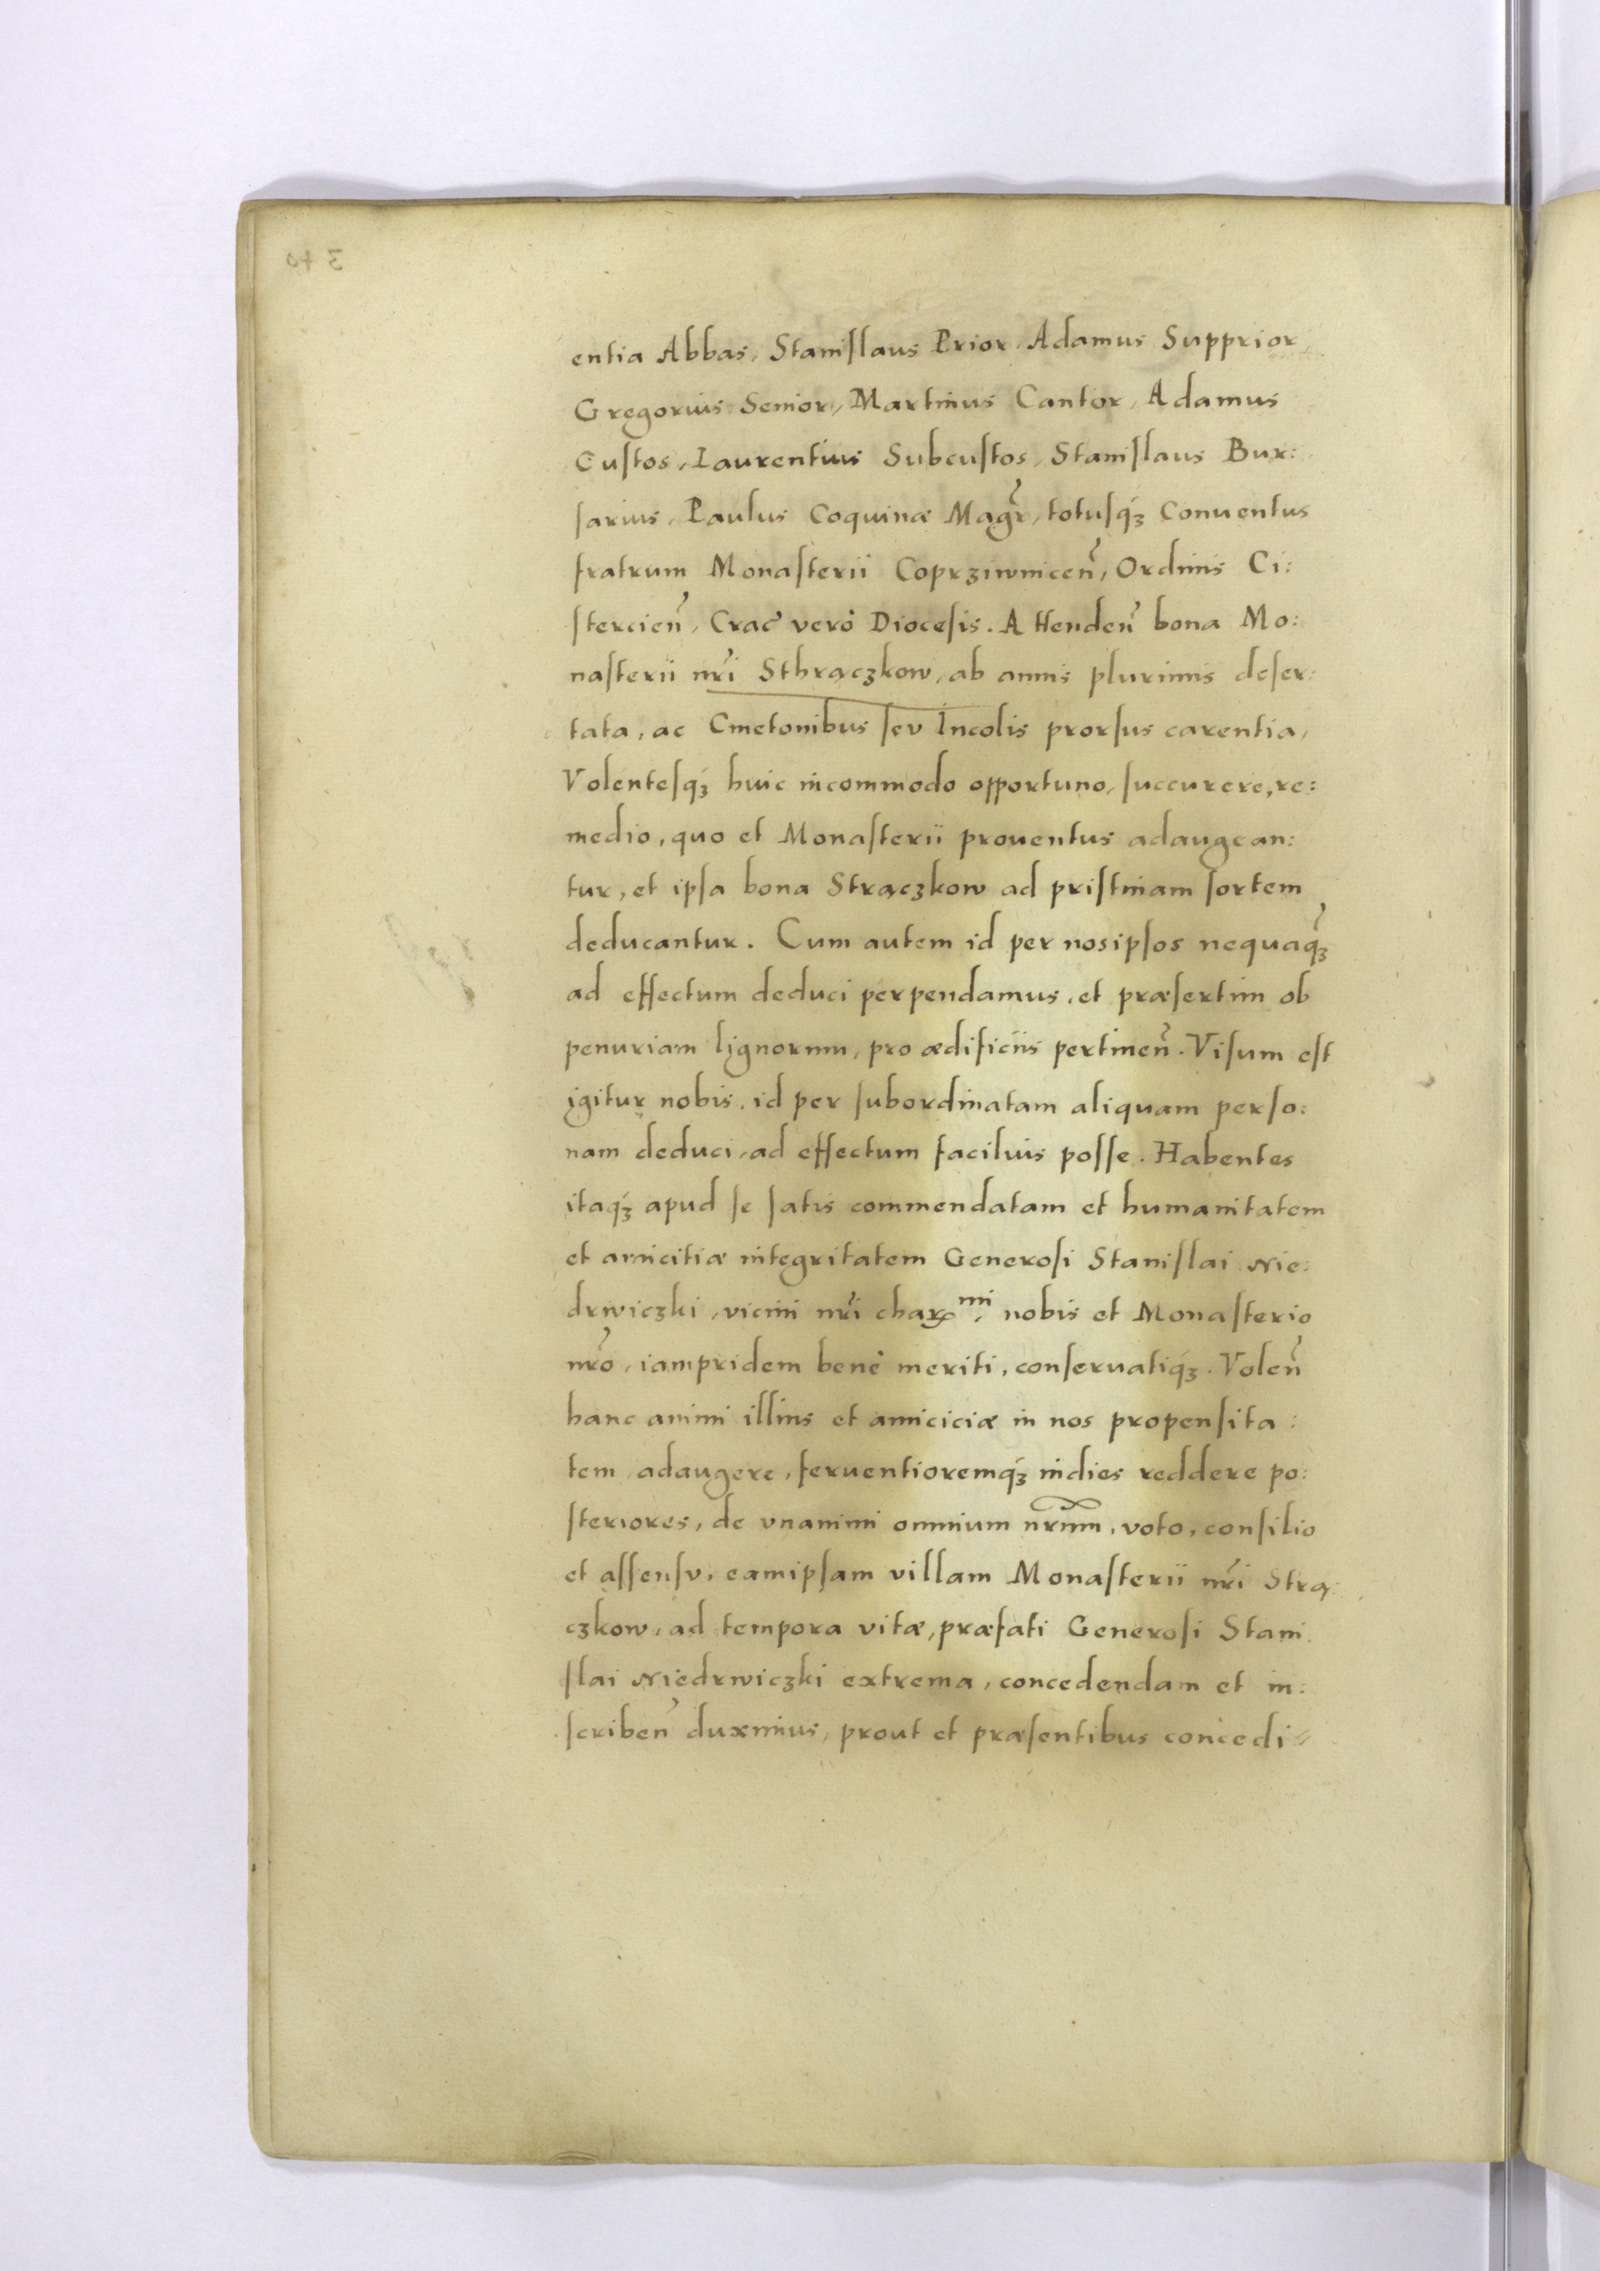 entia Abbas, Staniſlaus Prior, Adamus Supprior,
Gregorius Senior, Martinus Cantor, Adamus
Cuſtos, Laurentius Subcuſtos, Staniſlaus Bur:
ſarius, Paulus Coquinæ Magr̃, totuſq́ꝫ Conuentus
fratrum Monaſterii Coprziwnicen̄, Ordinis Ci:
ſtercien̄, Crac̄ verò Dioceſis. Attenden̄ bona Mo:
naſterii nr̃i Sthrączkow, ab annis plurimis deſer:
tata, ac Cmetonibus ſev Incolis prorſus carentia,
Volenteſq́ꝫ huic incommodo opportuno, ſuccurere, re:
medio, quo et Monaſterii prouentus adaugean:
tur, et ipſa bona Strączkow ad priſtinam ſortem
deducantur. Cum autem id per nosipſos nequaq̃ꝫ
ad effectum deduci perpendamus, et præſertim ob
penuriam lignorum, pro ædificiis pertinen̄. Viſum eſt
igitur nobis, id per ſubordinatam aliquam perſo:
nam deduci, ad effectum facilius poſſe. Habentes
itaq́ꝫ apud ſe ſatis commendatam et humanitatem
et amicitiæ integritatem Generoſi Staniſlai Nie:
drwiczki, vicini nr̃i charᵐⁱ, nobis et Monaſterio
nr̃o, iampridem benè meriti, conſeruatiq́ꝫ. Volen̄
hanc animi illius et amiciciæ in nos propenſita:
tem adaugere, feruentioremq́ꝫ indies reddere po:
ſteriores, de vnanimi omnium nr̃um, voto, conſilio
et aſſenſv, eamipſam villam Monaſterii nr̃i Strą:
czkow, ad tempora vitæ, præfati Generoſi Stani:
ſlai Niedrwiczki extrema, concedendam et in:
ſcriben̄ duximus, prout et præſentibus concedi⸗